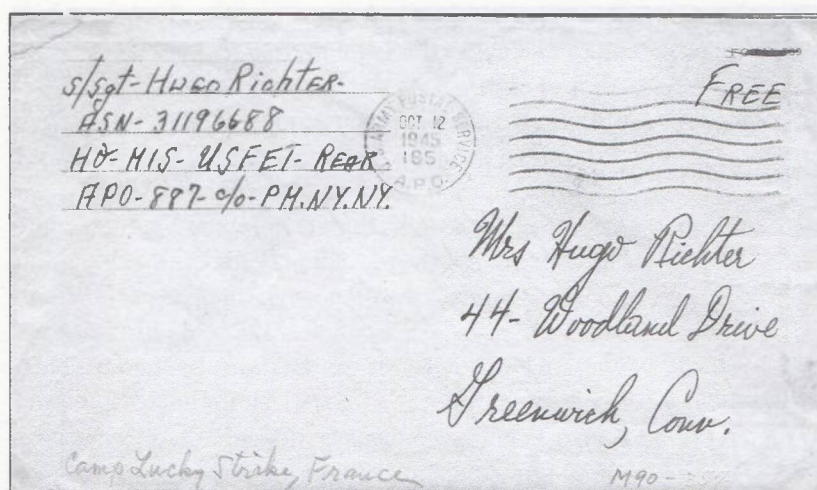 S/Sgt-Hugo Richter-
ASN-31196688
HQ-MIS-USFET-REAR
APO-887-c/o-PM.NY.NY.
U.S. ARMY POSTAL SERVICE
OCT 12
1945
165
A.P.O.
FREE
Mrs Hugo Richter
44-Woodland Drive
Greenwich, Conn.
Camp Lucky Strike, France
M90-